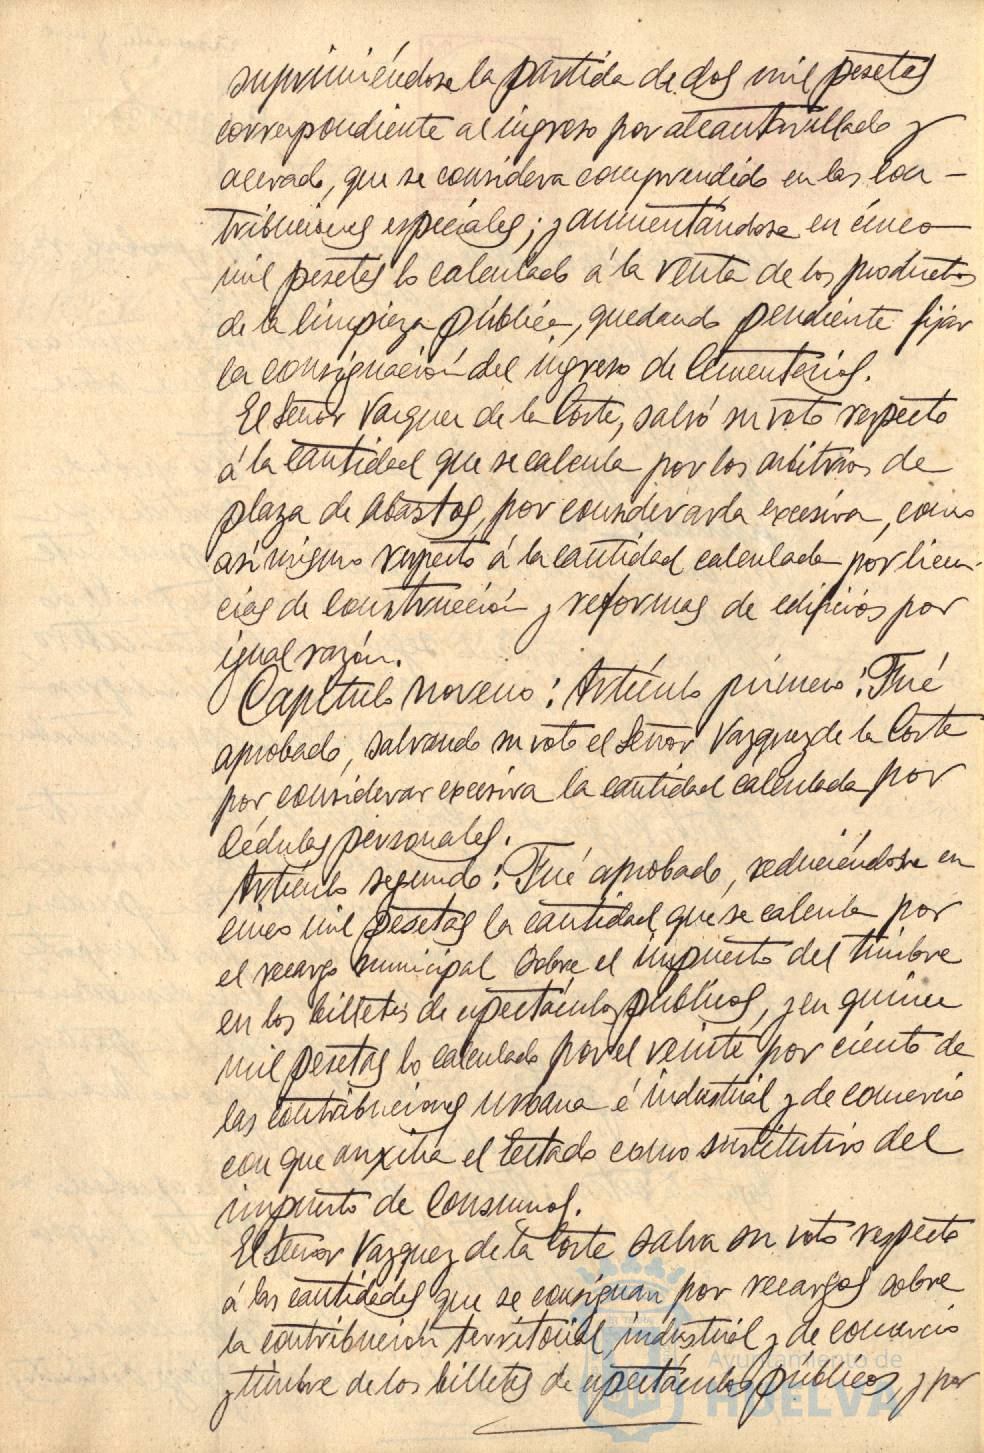 suprimiéndose la partida de dos mil pesetas
correspondiente al ingreso por alcantarillado y
acerado, que se considera comprendido en las con-
tribuciones especiales; y aumentándose en cinco
mil pesetas lo calculado á la venta de los productos
de la limpieza pública, quedando pendiente fijar
la consignación del ingreso de Cementerios.
El Señor Vazquez de la Corte, salvó su voto respecto
á la cantidad que se calcula por los arbitrios de
plaza de Abastos, por considerarla excesiva, como
asi mismo respecto á la cantidad calculada por licen-
cias de Construcción y reformas de edificios por
igual razón.
Capitulo noveno: Artículo primero: Fué
aprobado, salvando su voto el Señor Vazquez de la Corte
por considerar excesiva la cantidad calculada por
Cédulas personales.
Artículo segundo: Fué aprobado, reduciéndose en
cinco mil pesetas la cantidad que se calcula por
el recargo municipal sobre el impuesto del timbre
en los billetes de espectáculos públicos, y en quince
mil pesetas lo calculado por el veinte por ciento de
las contribuciones urbana é industrial y de comercio
con que auxilia el Estado como sustitutivo del
impuesto de Consumos.
El Señor Vazquez de la Corte salva su voto respecto
á las cantidades que se consignan por recargos sobre
la contribución territorial, industrial y de comercio
y timbre de los billetes de espectáculos públicos, y por
Ayuntamiento de
HUELVA